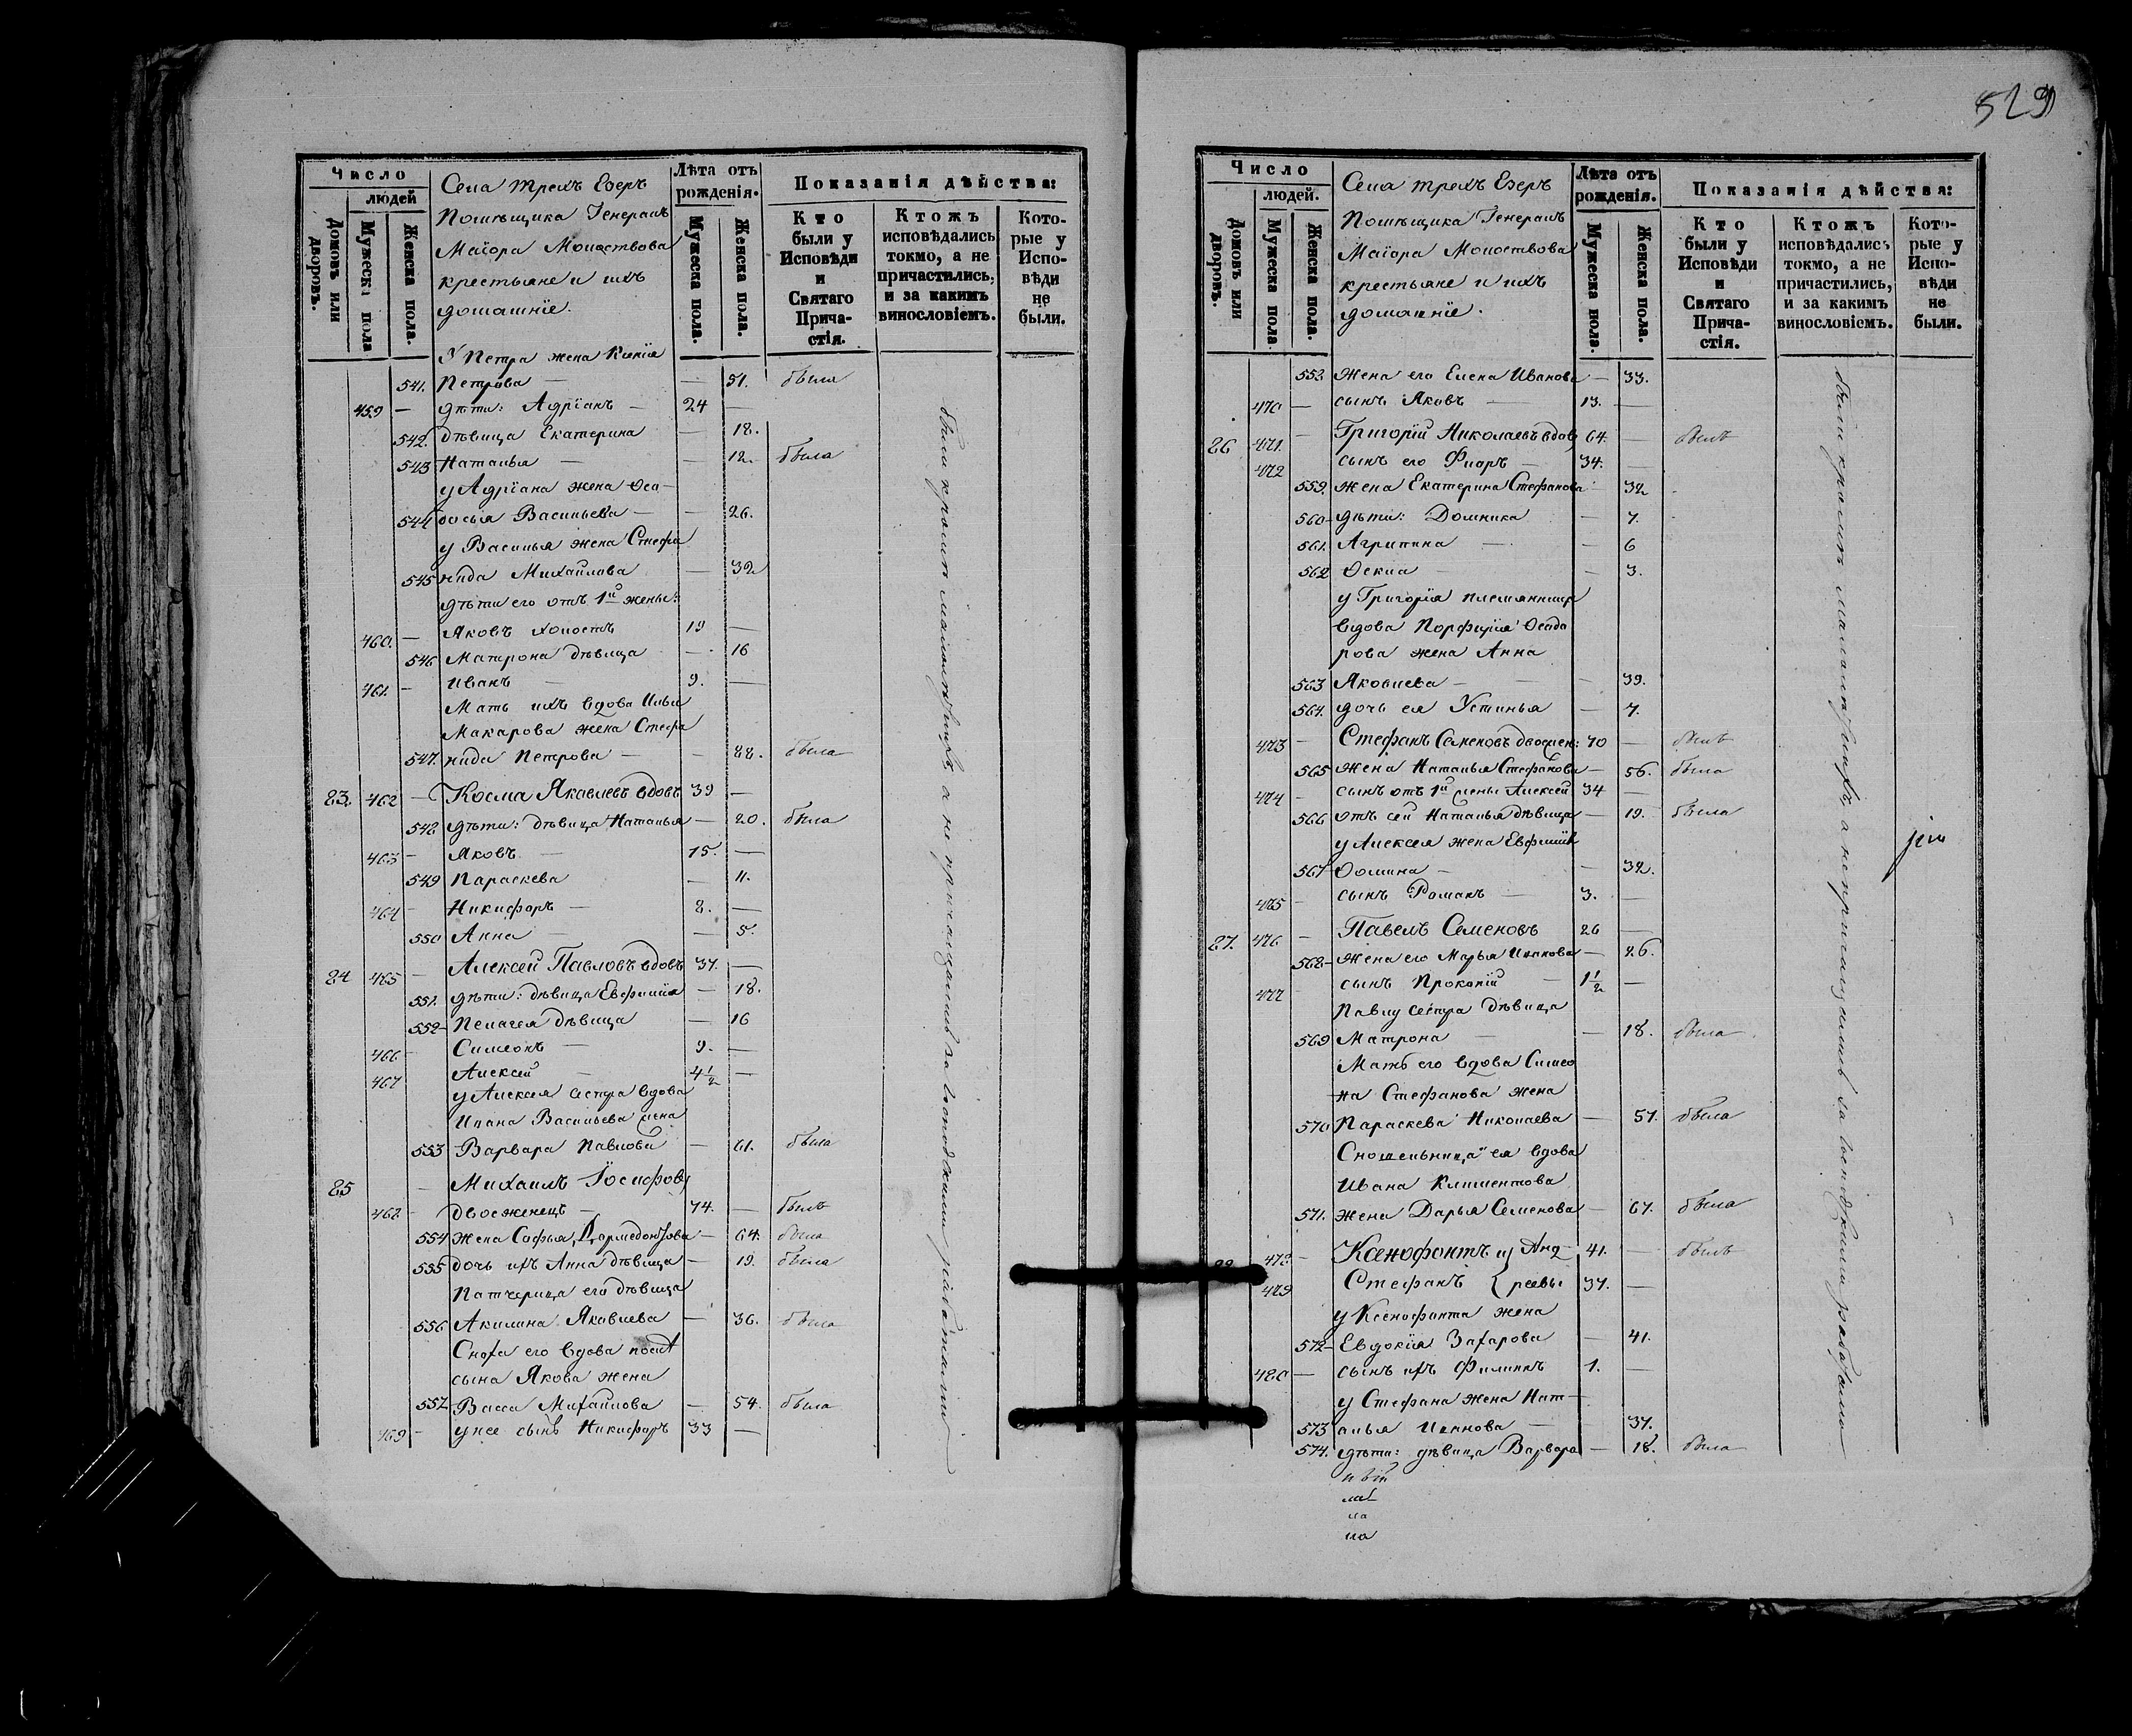 529
Число
людей
Домовъ или дворовъ.
Мужеска пола
Женска пола.
Села трехъ Езеръ
Помѣщика Генералъ
Маіора
крестьяне и ихъ
домашніе.
Лѣта отъ рожденія.
Мужеска пола.
Женска пола.
Показанія дѣйства:
Кто были у Исповѣди и Святаго Причастія.
Ктожъ исповѣдались токмо, а не причастились, и за какимъ винословіемъ.
Которые у Исповѣди не были.
У Петра жена Ксенія
541. Петрова — — 51. была
459 — дѣти: Адріанъ — 24 —
542. дѣвица Екатерина — 18.
543 Наталья — — 12. была
у Адріана жена Ѳео-
544 досья Васильева — — 26.
у Василья жена Стефа
545 нида Михайлова — 32
дѣти его отъ 1й жены:
460. — Яковъ холостъ 19 —
546 Матрона дѣвица — 16
461. — Иванъ — 9. —
Мать ихъ вдова Ильи
Макарова жена Стефа
547. нида Петрова — — 88. была
83. 462 — Косма Яковлевъ вдовъ 39 —
548 дѣти: дѣвица Наталья — 20. была
463 — Яковъ — 15. —
549 Параскева — 11.
464 — Никифоръ — 8. —
550 Анна — — 5.
84 465 — Алексей Павловъ вдовъ 37. —
551. дѣти: дѣвица Евфимія — 18.
552 — Пелагея дѣвица — 16
466 — Симеонъ — 9. —
467 Алексей — 4½ —
у Алексея сестра вдова
Ивана Васильева жена
553 Варвара Павлова — 61. была
85 — Михаилъ Іосифовъ
468 — двоеженецъ — 74. — былъ
554 жена Софья Дормедонтова — 64. была
555 дочь ихъ Анна дѣвица — 19. была
Патчерица его дѣвица
556 Акилина Яковлева — 36. была
Сноха его вдова
сына Якова жена
557 Васса Михайлова — 54. была
469 — у нее сынъ Никифоръ 33 —
были кромѣ а не причащались за господскими работами
Число
людей.
Домовъ или дворовъ.
Мужеска пола.
Женска пола.
Села трехъ Езеръ
Помѣщика Генералъ
Маіора
крестьяне и ихъ
домашніе.
Лѣта отъ рожденія.
Мужеска пола.
Женска пола.
Показанія дѣйства:
Кто были у Исповѣди и Святаго Причастія.
Ктожъ исповѣдались токмо, а не причастились, и за какимъ винословіемъ.
Которые у Исповѣди не были.
558 жена его Елена Иванова — 33.
470 — сынъ Яковъ — 13. —
86 471. — Григорій Николаевъ вдовъ 64. — былъ
472 сынъ его Флоръ — 34. —
559. жена Екатерина Стефанова — 32
560 — дѣти: Домника — 7.
561. Агрипина — — 6
562 Ѳекла — — 3.
у Григорія племянника
вдова Порфирія Ѳеодо
рова жена Анна
563 Яковлева — — 39.
564. дочь ея Устинья — 7.
473 — Стефанъ Семеновъ двоежен: 70 — былъ
565 жена Наталья Стефанова — 56. была
474 — сынъ отъ 1й жены Алексей 34 —
566 отъ сей Наталья дѣвица — 19. была
у Алексея жена Евфимія
567 Ѳомина — — 32.
475 — сынъ Романъ — 3. —
87. 476 — Павелъ Семеновъ 26 —
568 — жена его Марья Иванова — 26.
477 — сынъ Прокопій — 1½ —
Павлу сестра дѣвица
569 Матрона — — 18. была
Мать его вдова Симео
на Стефанова жена
570 Параскева Николаева — 57. была
Сношельница ея вдова
Ивана Климентова
571. жена Дарья Семенова — 67. была
88 478 — Ксенофонтъ и Анд- 41. — былъ
479 Стефанъ реевы 37. —
у Ксенофонта жена
572 — Евдокія Захарова — 41.
480 — сынъ ихъ Филиппъ 1. —
у Стефана жена Нат-
573 алья Иванова — 37.
574. дѣти: дѣвица Варвара — 18. была
были кромѣ а не причащались за господскими работами